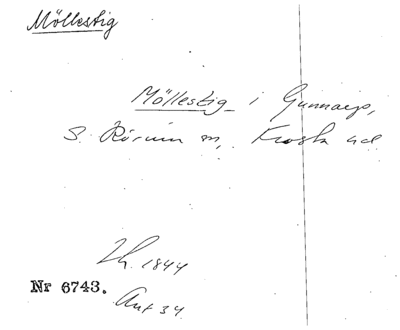 Möllestig
Möllestig i Gunnarp,
S. Rörum sn, Frosta hd
Lh. 1844
Nr 6743.
Ant 34